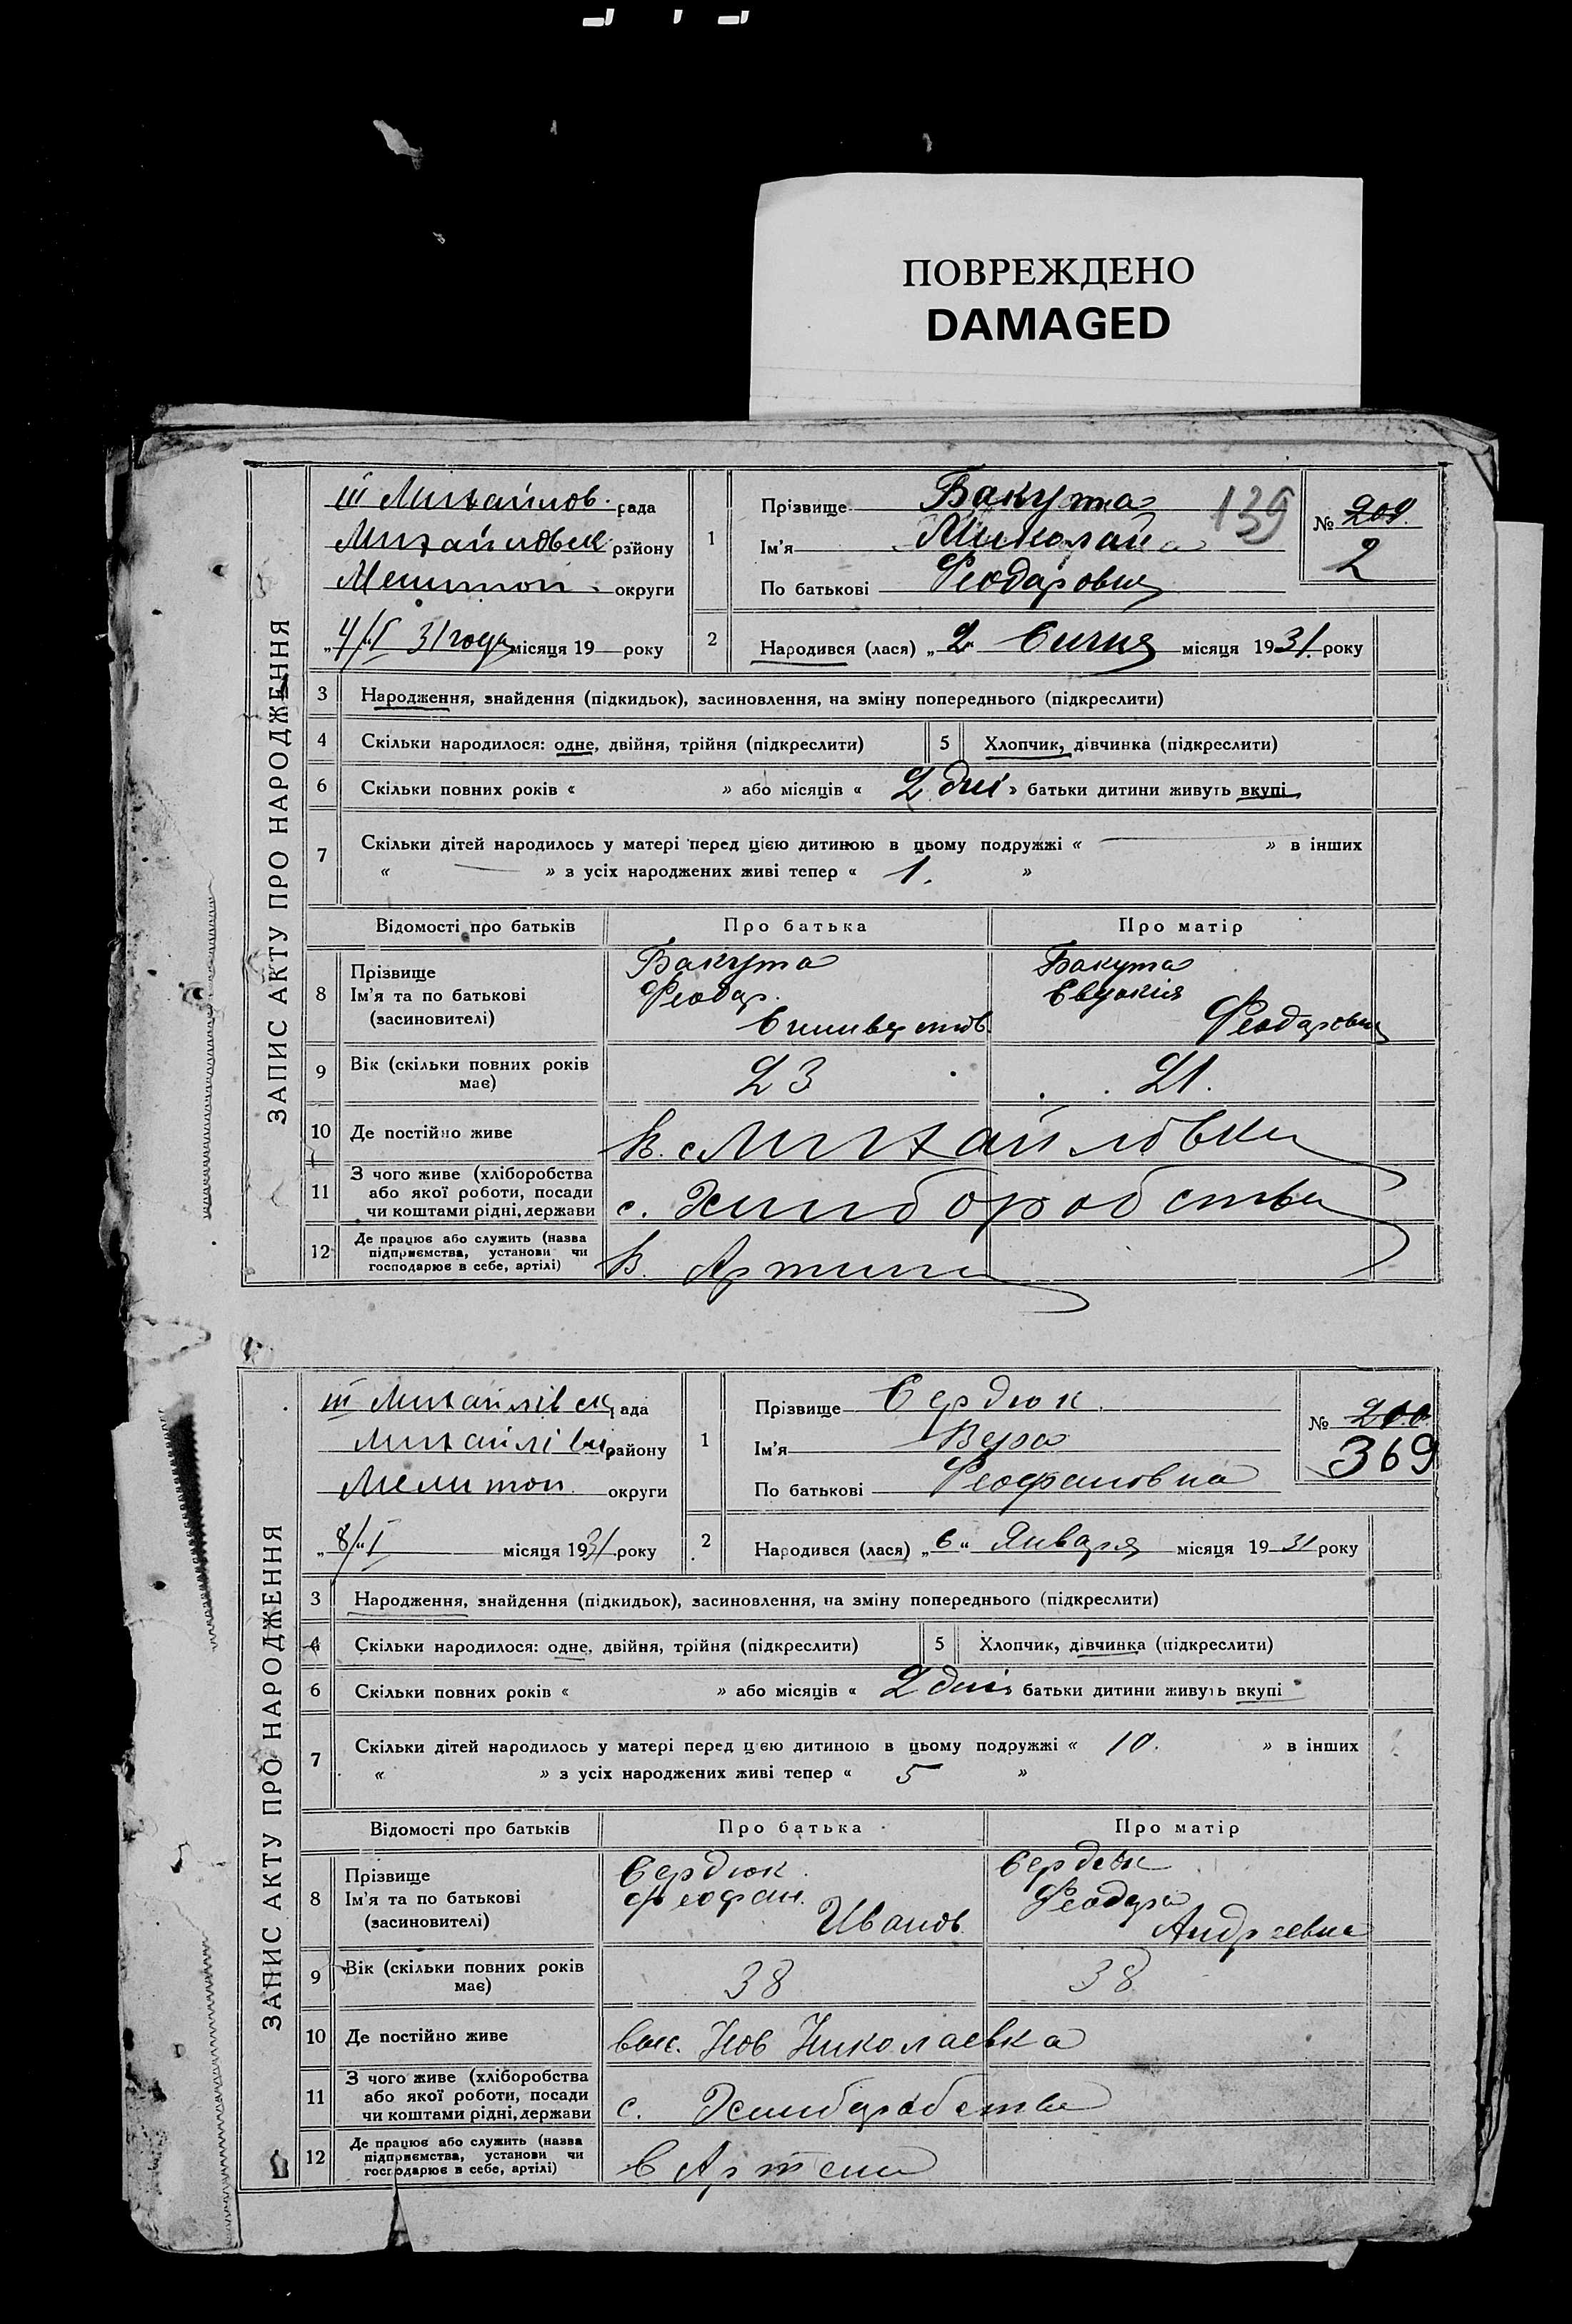 ПОВРЕЖДЕНО
DAMAGED
ЗАПИС АКТУ ПРО НАРОДЖЕННЯ
III Михайлов. рада
Михайловск району
Мелитоп. округи
„4/I 31 года місяця 19 року
1
Прізвище Бакута
139
Ім'я Миколай
По батькові Феодорович
№ 209.
2
2
Народився (лася) „2" Сичня місяця 1931. року
3 Народження, знайдення (підкидьок), засиновлення, на зміну попереднього (підкреслити)
4 Скільки народилося: одне, двійня, трійня (підкреслити)
5 Хлопчик, дівчинка (підкреслити)
6 Скільки повних років « » або місяців « 2 дні » батьки дитини живуть вкупі
7 Скільки дітей народилось у матері перед цією дитиною в цьому подружжі « — » в інших
« — » з усіх народжених живі тепер « 1. »
Відомості про батьків Про батька Про матір
8 Прізвище
Ім'я та по батькові
(засиновителі)
Бакута
Феодор.
Силивестов.
Бакута
Евдокія
Феодоровна
9 Вік (скільки повних років
має)
23
21.
10 Де постійно живе
в. Михайловки
11 З чого живе (хліборобства
або якої роботи, посади
чи коштами рідні, держави
с. Хлиборобства
12 Де працює або служить (назва
підприємства, установи чи
господарює в себе, артілі)
В. Артили
ЗАПИС АКТУ ПРО НАРОДЖЕННЯ
III Михайлівск рада
Михайлівск району
Мелитоп. округи
„8/"I місяця 1931 року
1
Прізвище Сердюк.
Ім'я Вера
По батькові Феофановна
№ 200
369
2
Народився (лася) „6" Января місяця 1931 року
3 Народження, знайдення (підкидьок), засиновлення, на зміну попереднього (підкреслити)
4 Скільки народилося: одне, двійня, трійня (підкреслити)
5 Хлопчик, дівчинка (підкреслити)
6 Скільки повних років « » або місяців « 2 дні батьки дитини живуть вкупі
7 Скільки дітей народилось у матері перед цією дитиною в цьому подружжі « 10. » в інших
« » з усіх народжених живі тепер « 5 »
Відомості про батьків Про батька Про матір
8 Прізвище
Ім'я та по батькові
(засиновителі)
Сердюк
Феофан.
Иванов.
Сердюк
Феодора
Андреевна
9 Вік (скільки повних років
має)
38
38
10 Де постійно живе
выс. Нов Николаевка
11 З чого живе (хліборобства
або якої роботи, посади
чи коштами рідні, держави
с. Хлиборобства
12 Де працює або служить (назва
підприємства, установи чи
господарює в себе, артілі)
в Артели